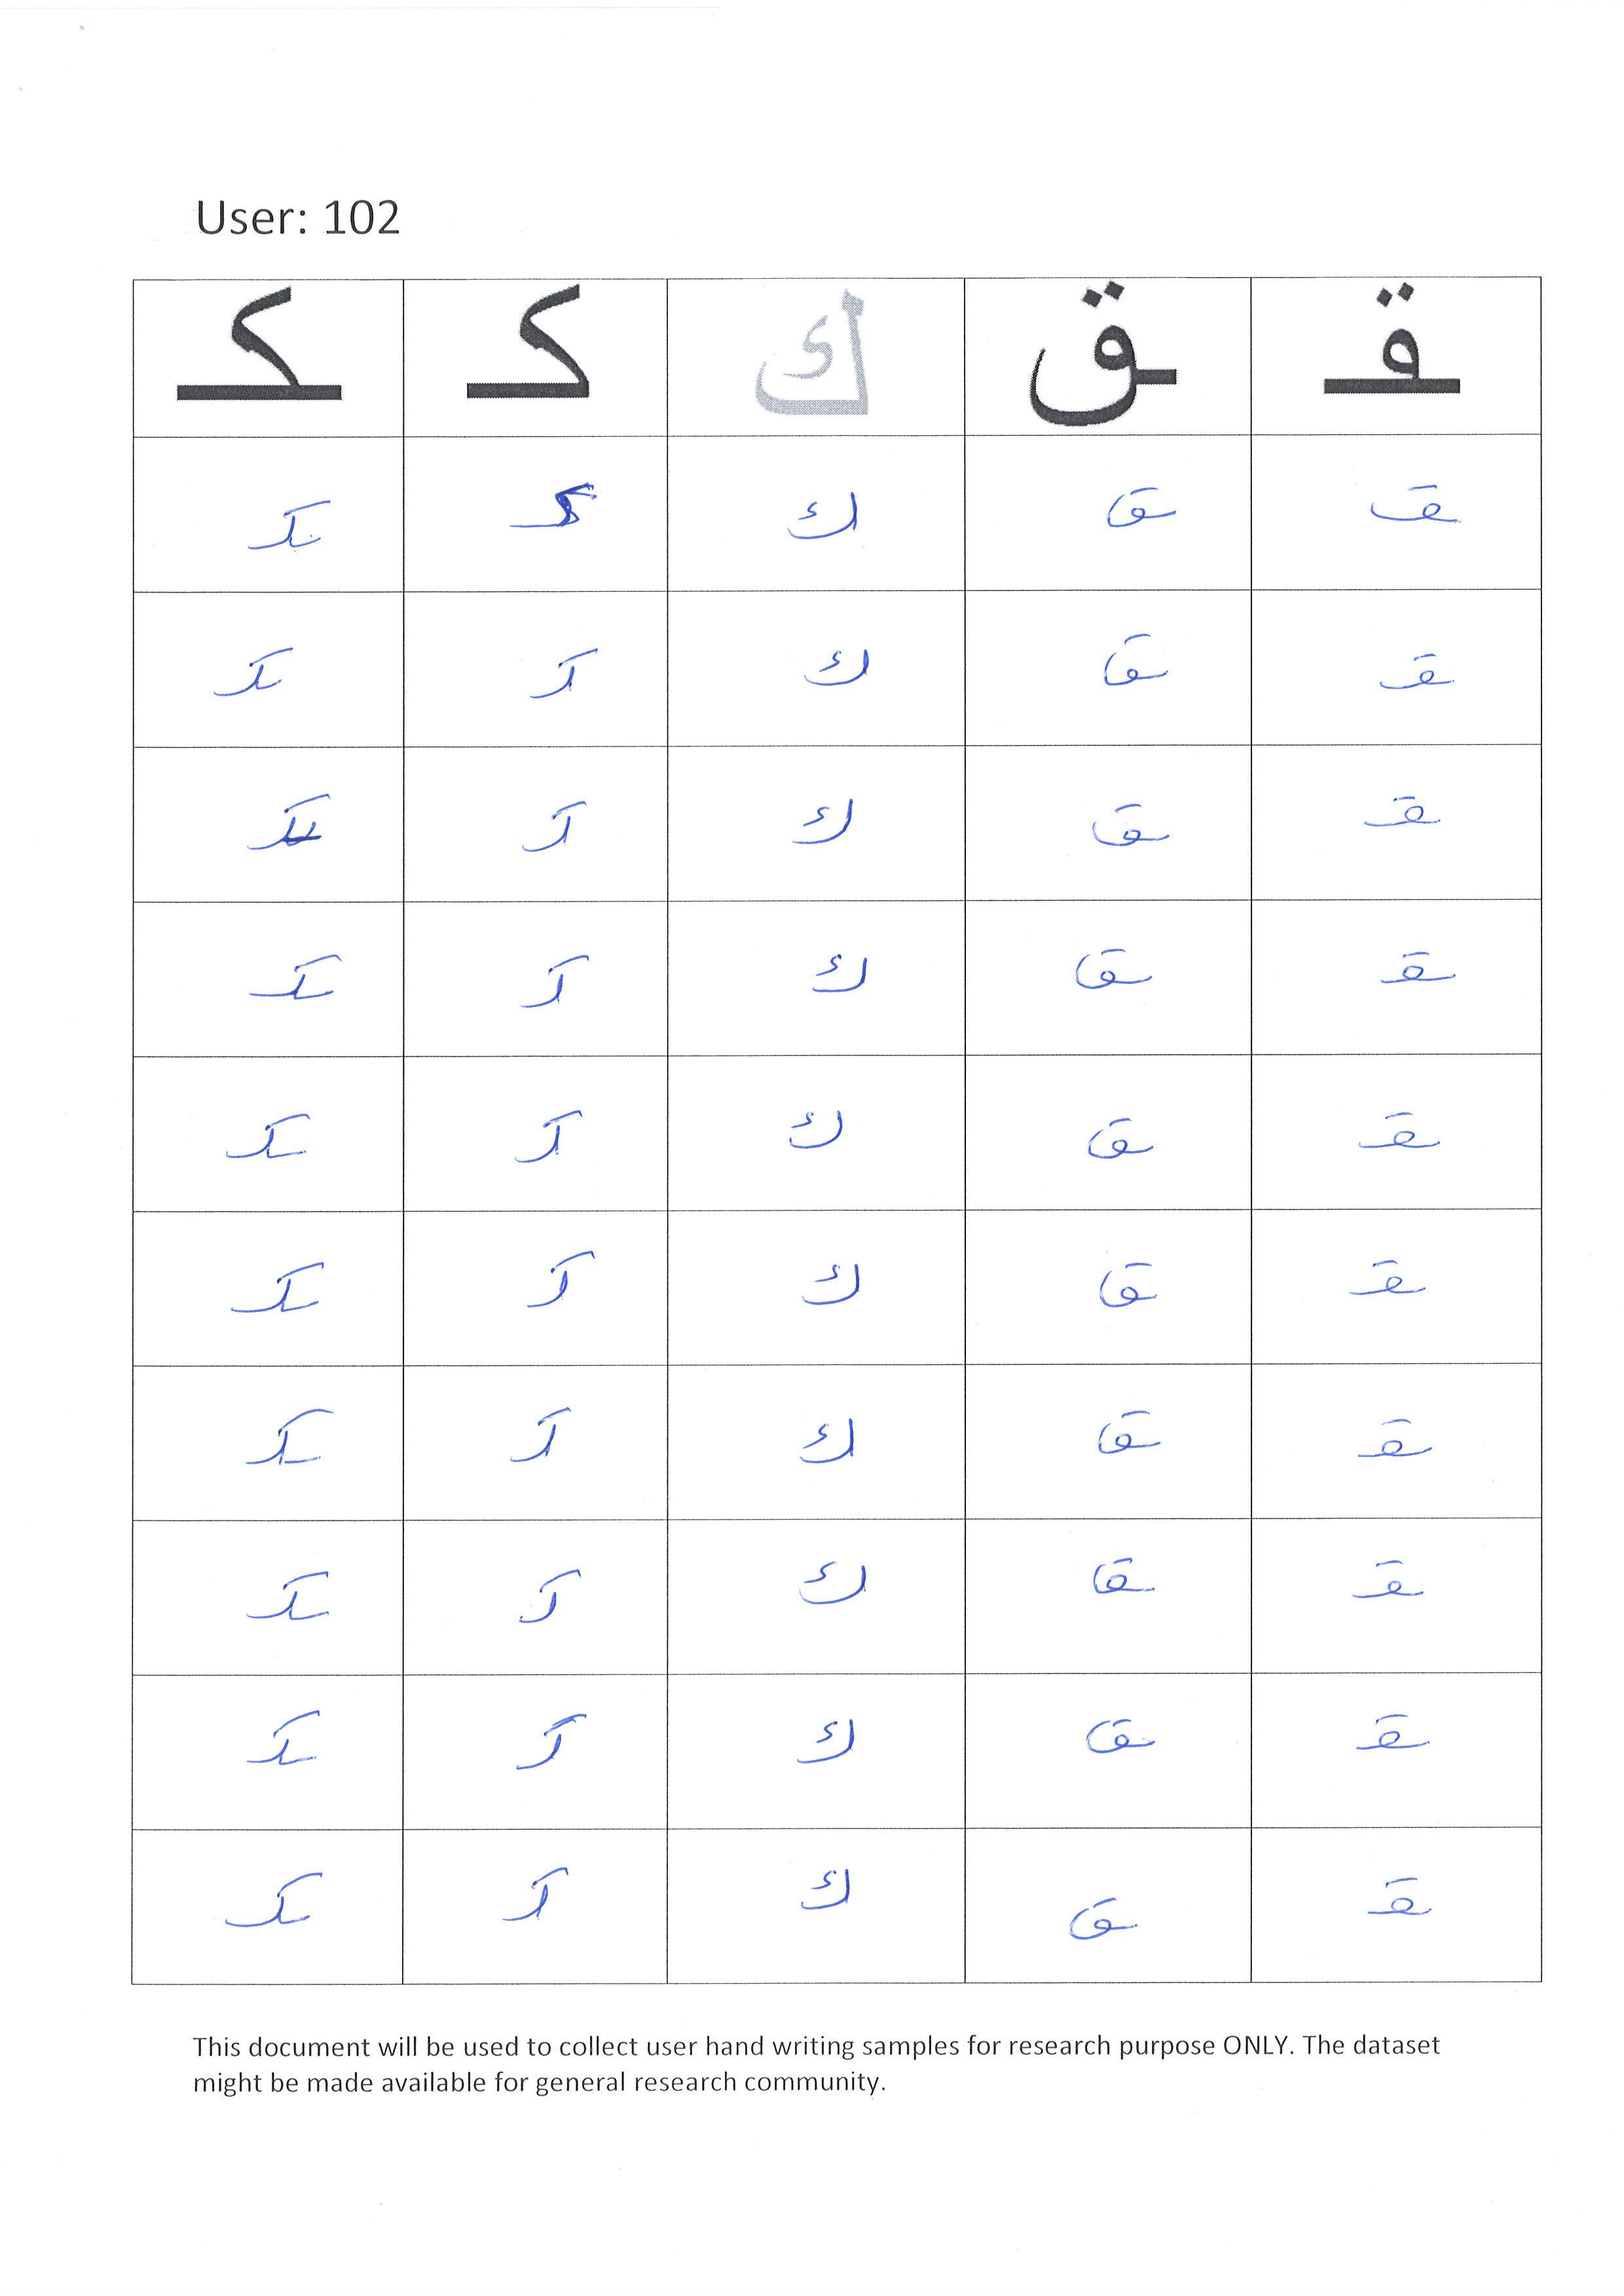 User: 102
ـقـ ـق ك كـ ـكـ
ـقـ ـق ك كـ ـكـ
ـقـ ـق ك كـ ـكـ
ـقـ ـق ك كـ ـكـ
ـقـ ـق ك كـ ـكـ
ـقـ ـق ك كـ ـكـ
ـقـ ـق ك كـ ـكـ
ـقـ ـق ك كـ ـكـ
ـقـ ـق ك كـ ـكـ
ـقـ ـق ك كـ ـكـ
ـقـ ـق ك كـ ـكـ
This document will be used to collect user hand writing samples for research purpose ONLY. The dataset
might be made available for general research community.